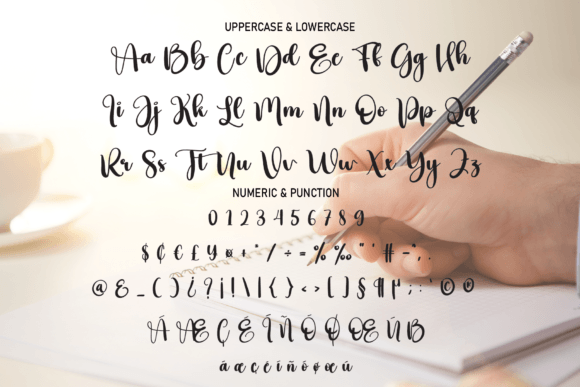 UPPERCASE & LOWERCASE
Aa Bb Cc Dd Ee Ff Gg Hh
Ii Jj Kk Ll Mm Nn Oo Pp Qq
Rr Ss Tt Uu Vv Ww Xx Yy Zz
NUMERIC & PUNCTION
0 1 2 3 4 5 6 7 8 9
$ ¢ € £ ¥ ¤ + * / ÷ = % ‰ " ' # - " , .
@ & _ ( ) ¿ ? ¡ ! \ | { } < > [ ] § ¶ ; : ' © ®
Á Æ Ç É Í Ñ Ó Ø Œ Ú ß
á æ ç é í ñ ó ø œ ú